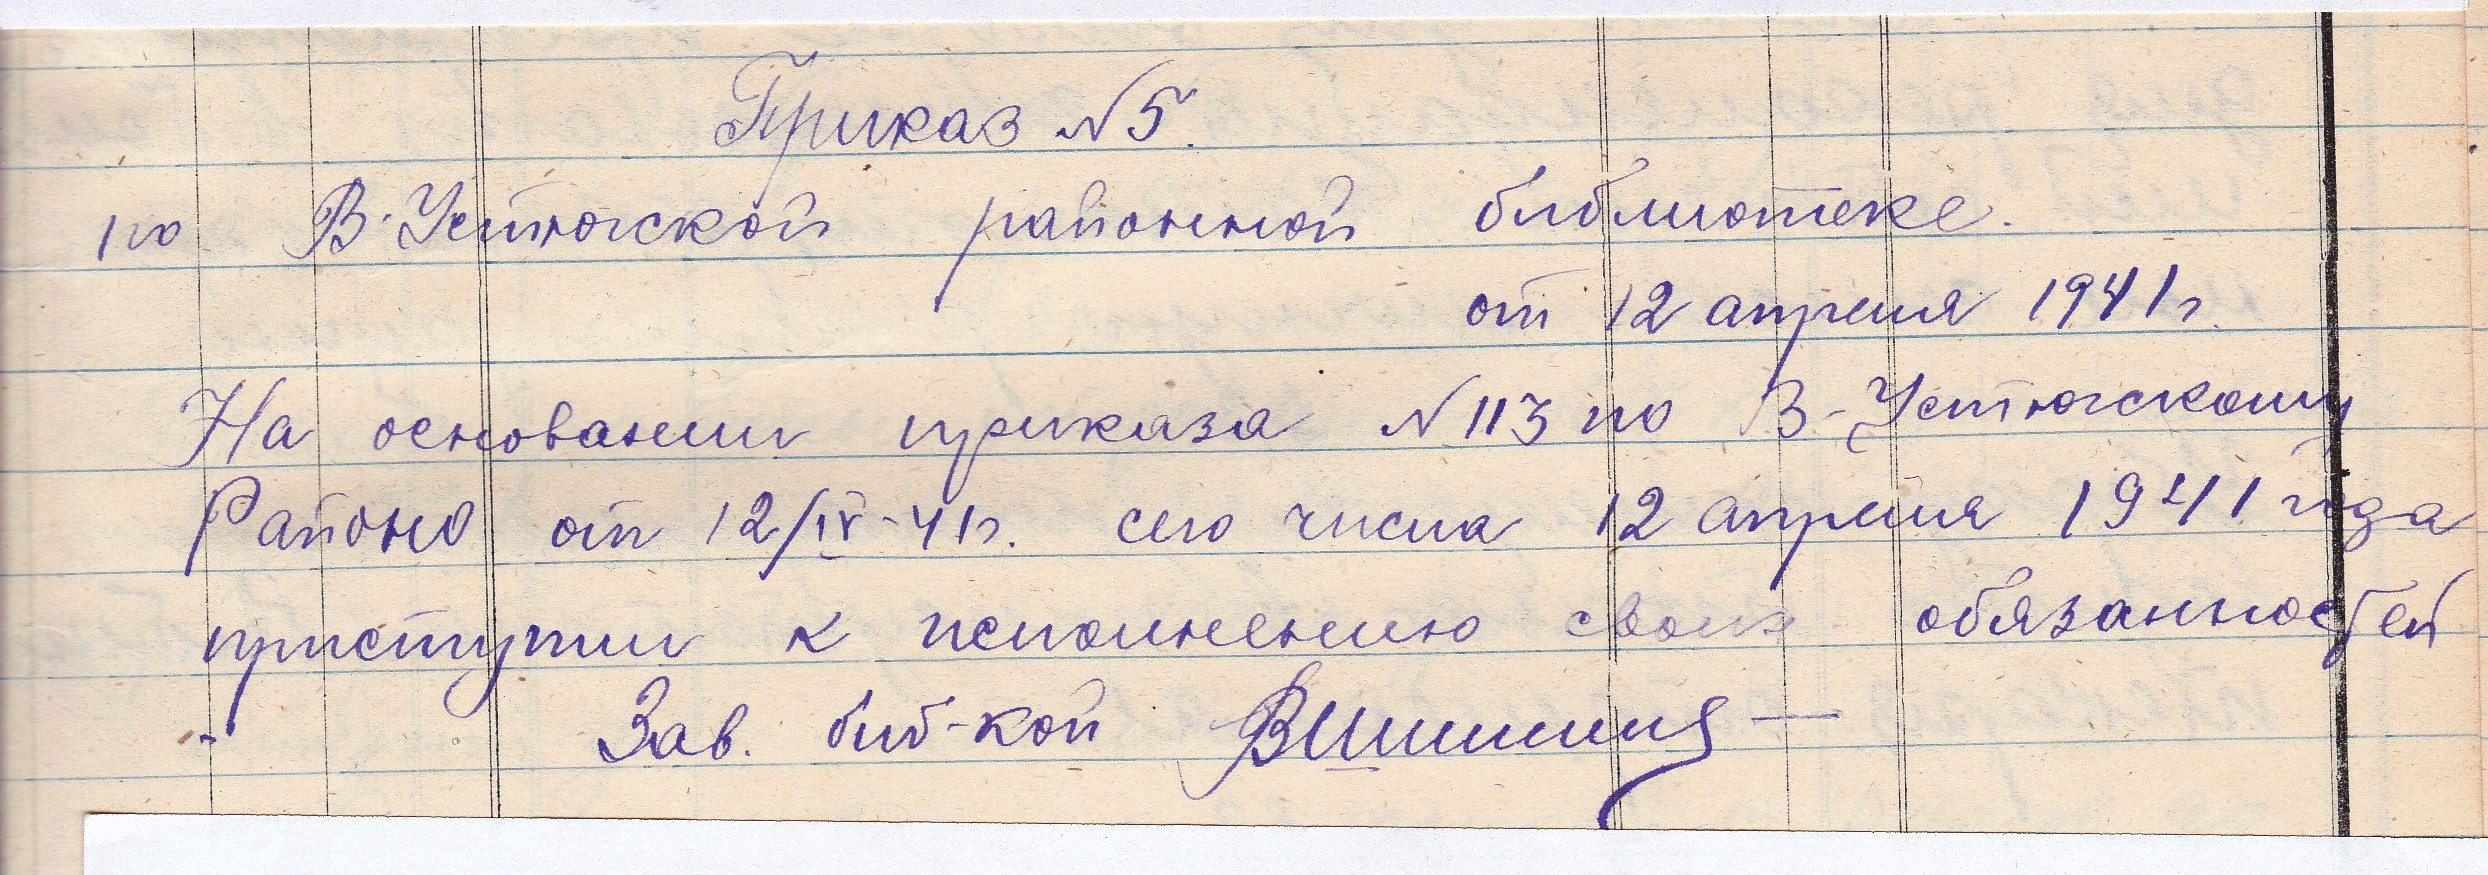 Приказ №5.
по В-Устюгской районной библиотеке.
от 12 апреля 1941 г.
На основании приказа №113 по В-Устюгскому
Районо от 12/IV-41г. сего числа 12 апреля 1941 года
приступил к исполнению своих обязанностей
Зав. биб-кой